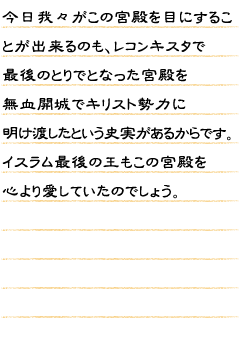 今日我々がこの宮殿を目にするこ
とが出来るのも、レコンキスタで
最後のとりでとなった宮殿を
無血開城でキリスト勢力に
明け渡したという史実があるからです。
イスラム最後の王もこの宮殿を
心より愛していたのでしょう。